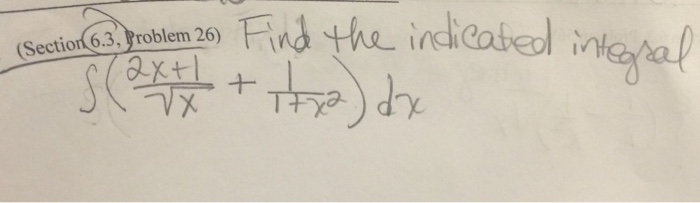 (Section 6.3, Problem 26) Find the indicated integral
∫(2x+1/√x + 1/1+x²) dx